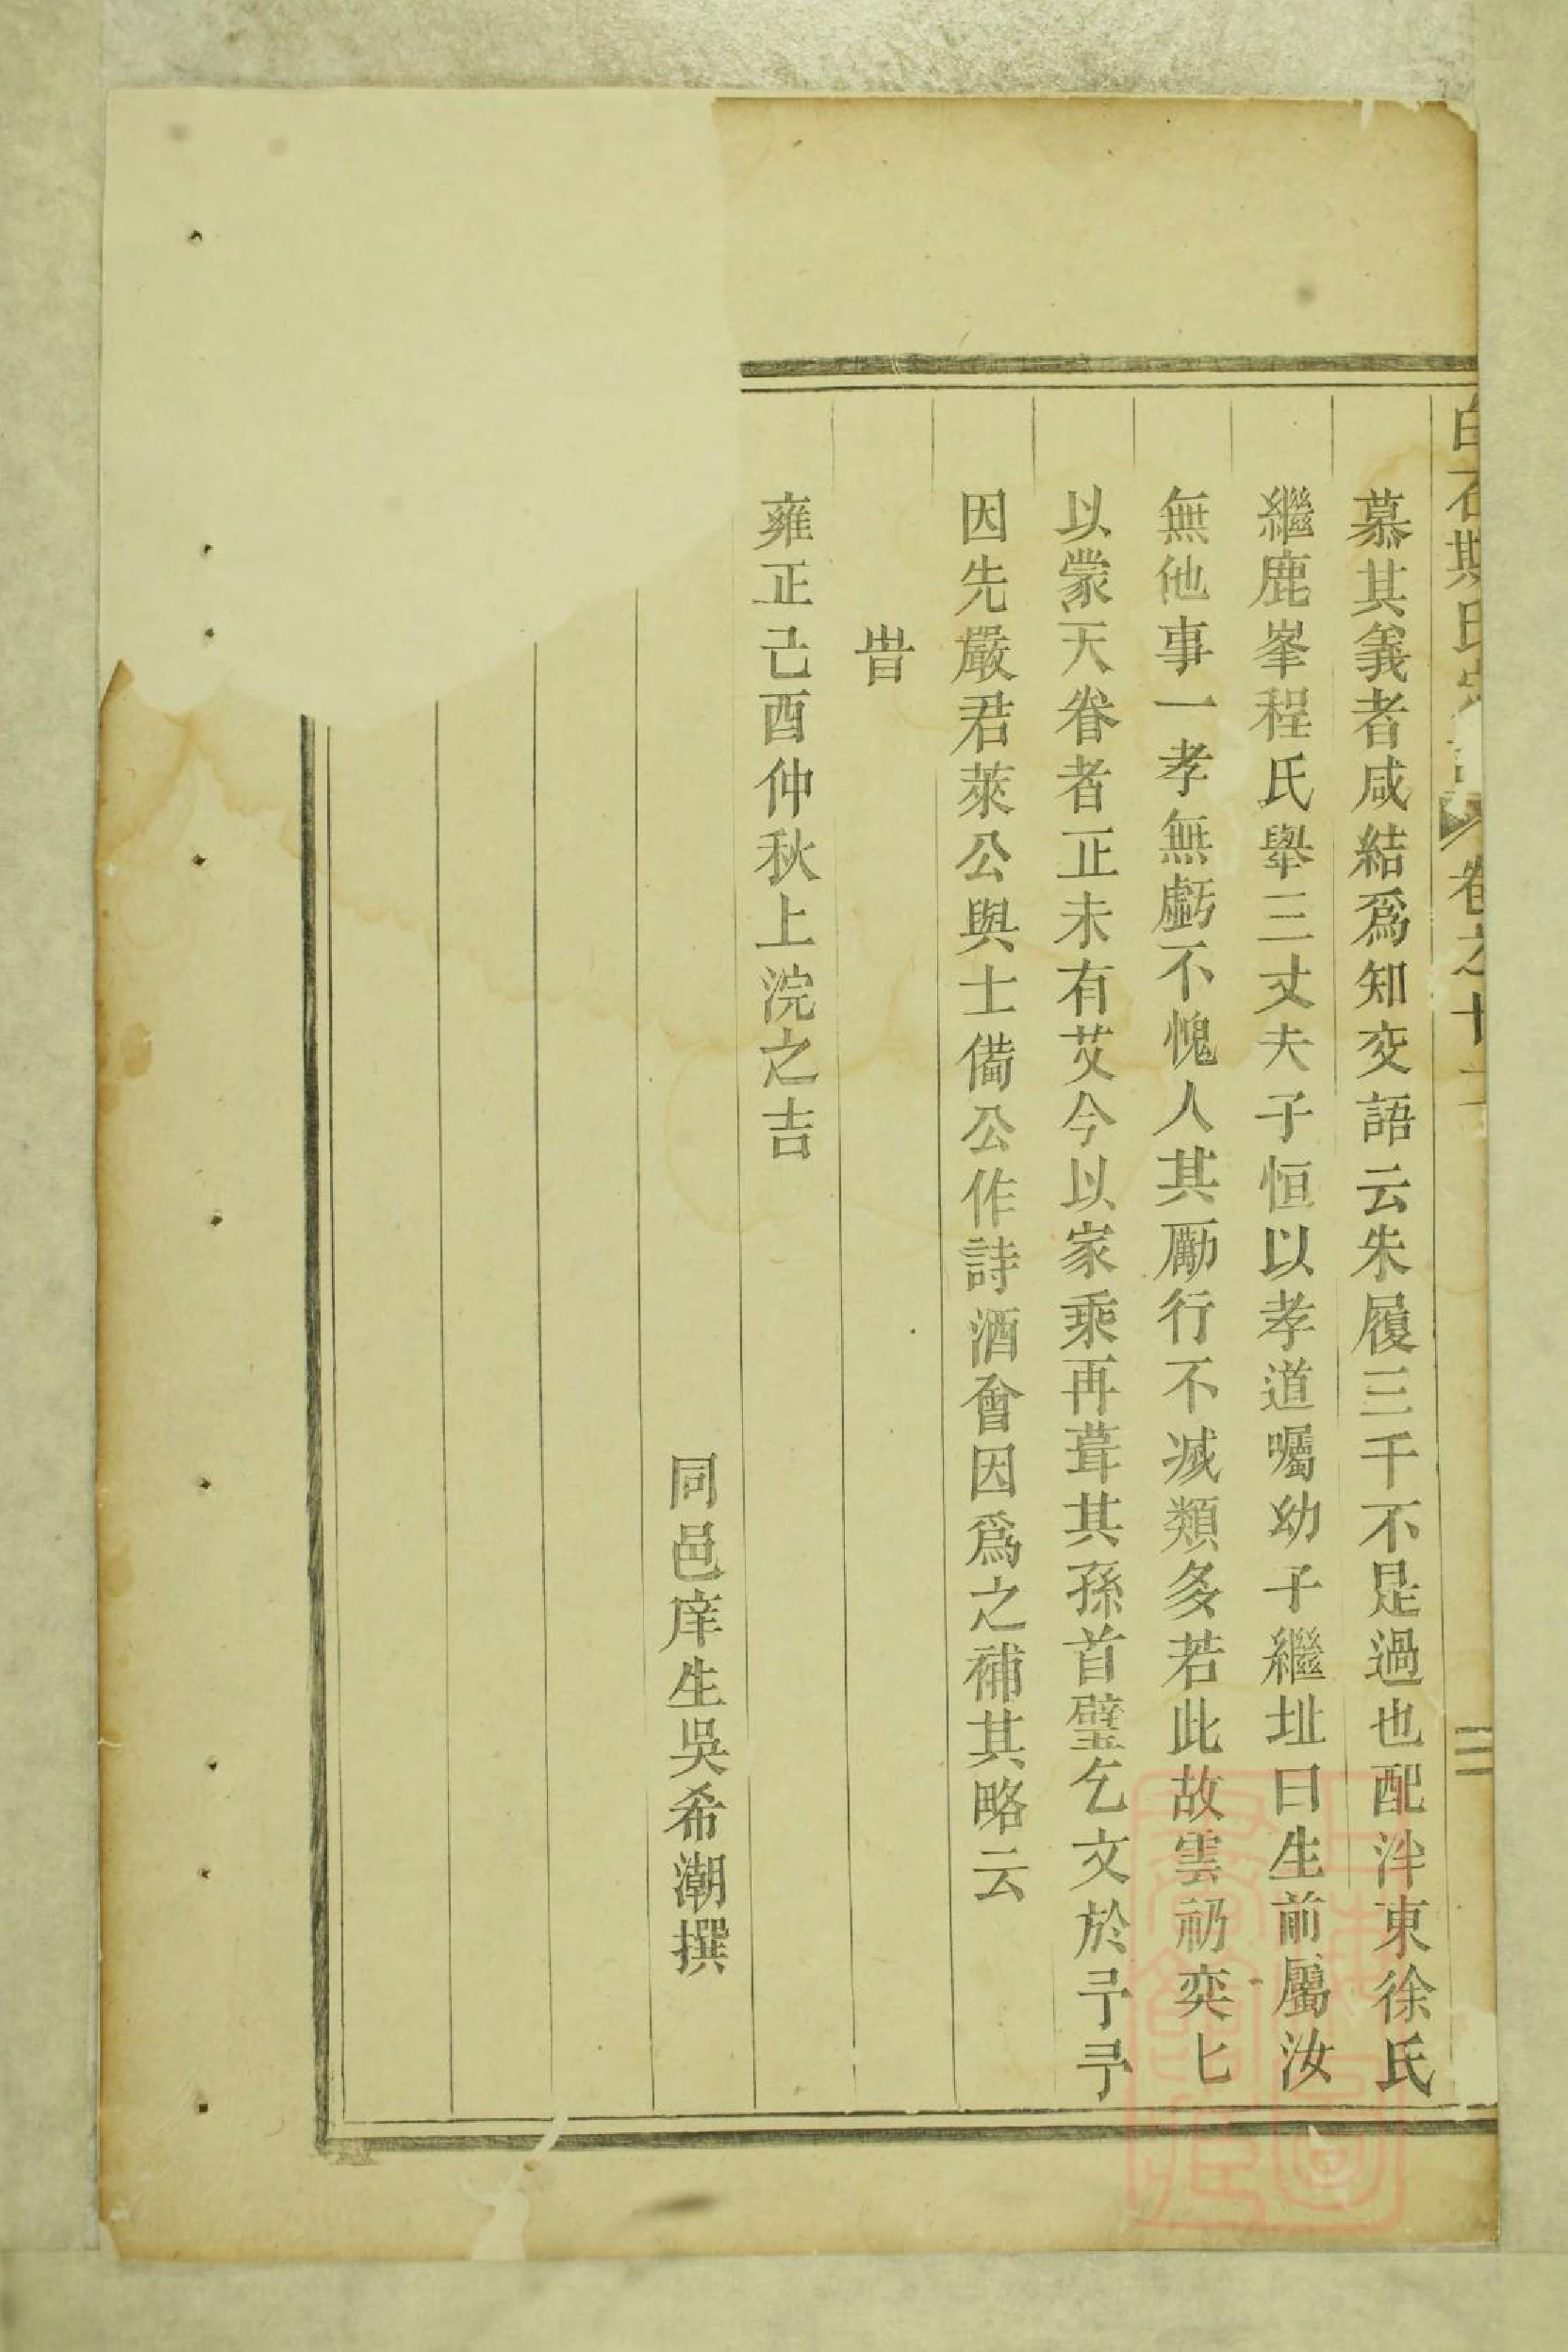 白石斯氏宗譜 卷之十 二
慕其義者咸結爲知交語云朱履三千不是過也配泮東徐氏
繼鹿峯程氏舉三丈夫子恒以孝道囑幼子繼址曰生前屬汝
無他事一孝無虧不愧人其勵行不减類多若此故雲礽奕匕
以蒙天眷者正未有艾今以家乘再葺其孫首璧乞文於予予
因先嚴君萊公與士備公作詩酒會因爲之補其略云
旹
雍正己酉仲秋上浣之吉
同邑庠生吳希潮撰